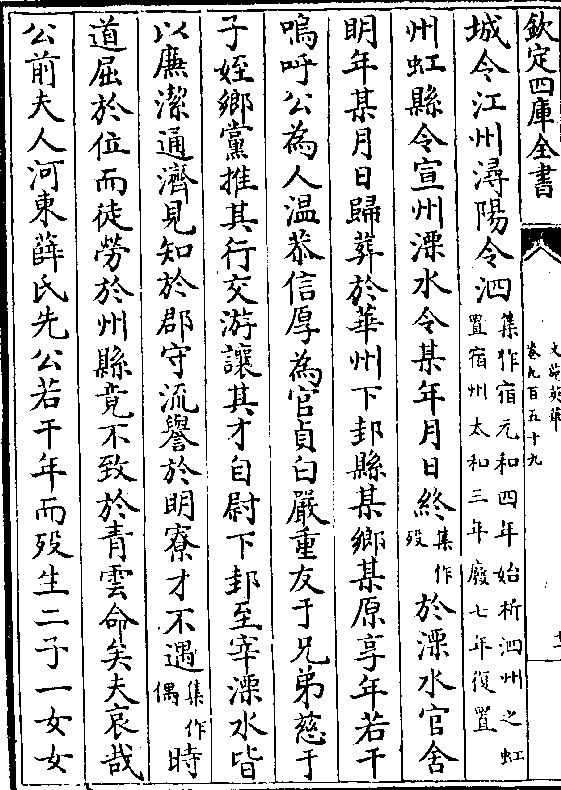 欽定四庫全書
文苑英華
卷九百五十九
十一
城令江州潯陽令泗集作宿元和四年始析泗州之虹置宿州太和三年廢七年復置
州虹縣令宣州溧水令某年月日終集作歿於溧水官舍
明年某月日歸葬於華州下邽縣某鄉某原享年若干
嗚呼公為人温恭信厚為官貞白嚴重友于兄弟慈于
子姪鄉黨推其行交游讓其才自尉下邽至宰溧水皆
以廉潔通濟見知於郡守流譽於明寮才不遇集作偶時
道屈於位而徒勞於州縣竟不致於青雲命矣夫哀哉
公前夫人河東薛氏先公若干年而歿生二子一女女